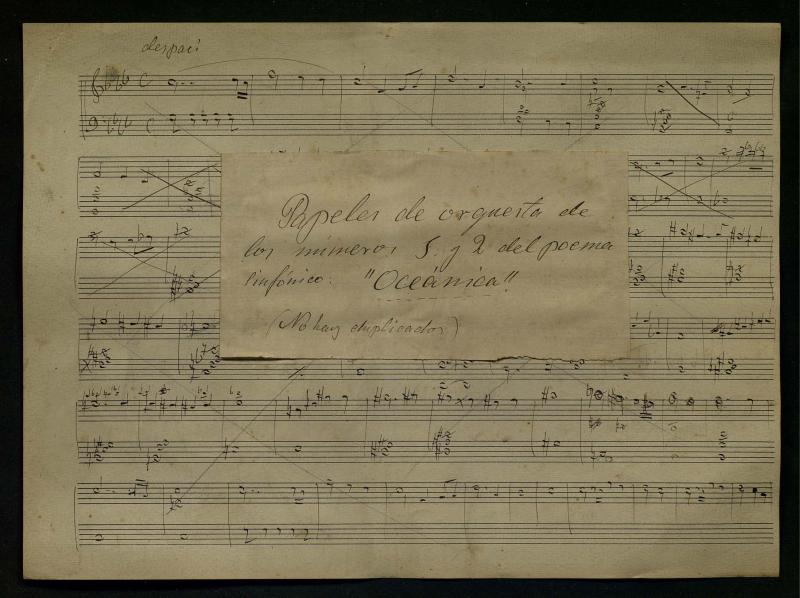 despaci
Papeles de orquesta de
los números 1 y 2 del poema
sinfónico: "Oceánica"
(No hay duplicados)